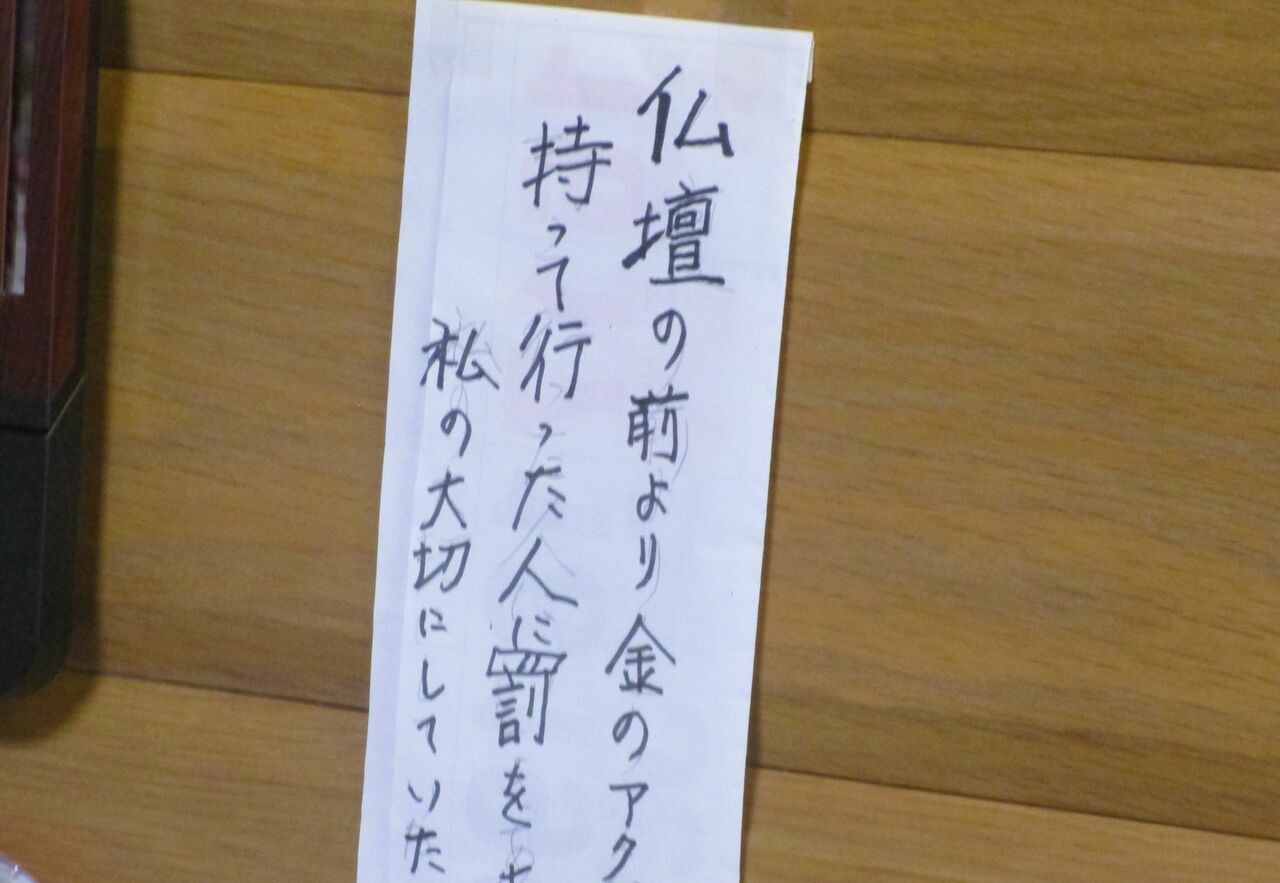 仏壇の前より金のアク
持って行った人に罰を
私の大切にしていた